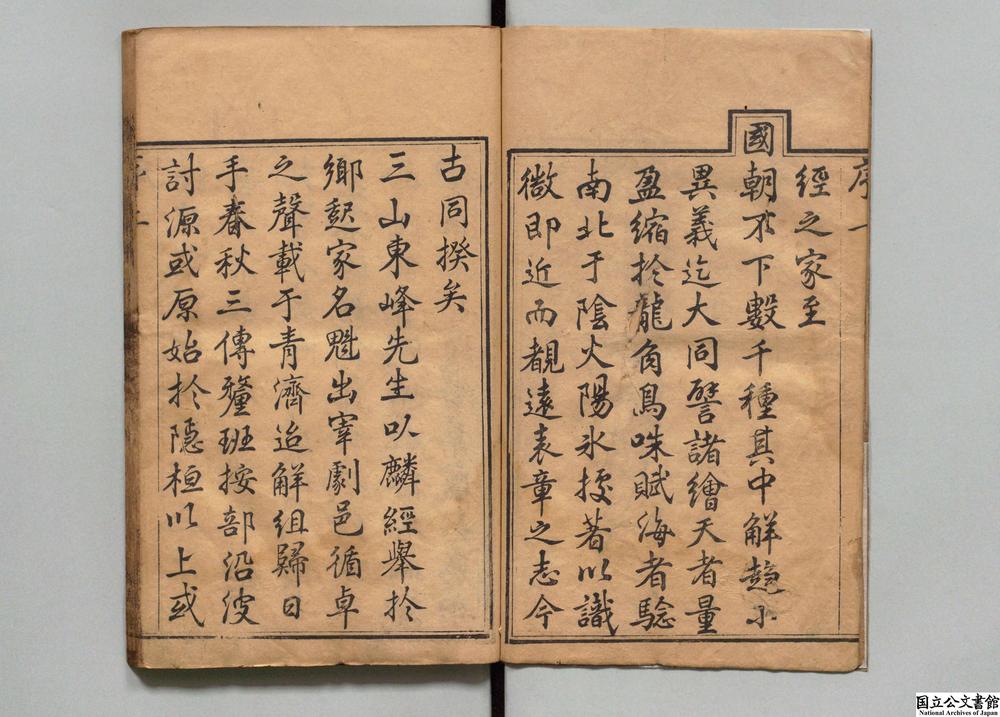 序一
經之家至
國朝不下數千種其中解趨不
異義迄大同譬諸繪天者量
盈縮於龍角鳥咮賦海者驗
南北于陰火陽氷援著以識
微即近而覩遠表章之志今
古同揆矣
三山東峰先生以麟經舉於
鄉起家名魁出宰劇邑循卓
之聲載于青濟迨解組歸日
手春秋三傳釐班按部沿波
討源或原始於隱桓以上或
国立公文書館
National Archives of Japan